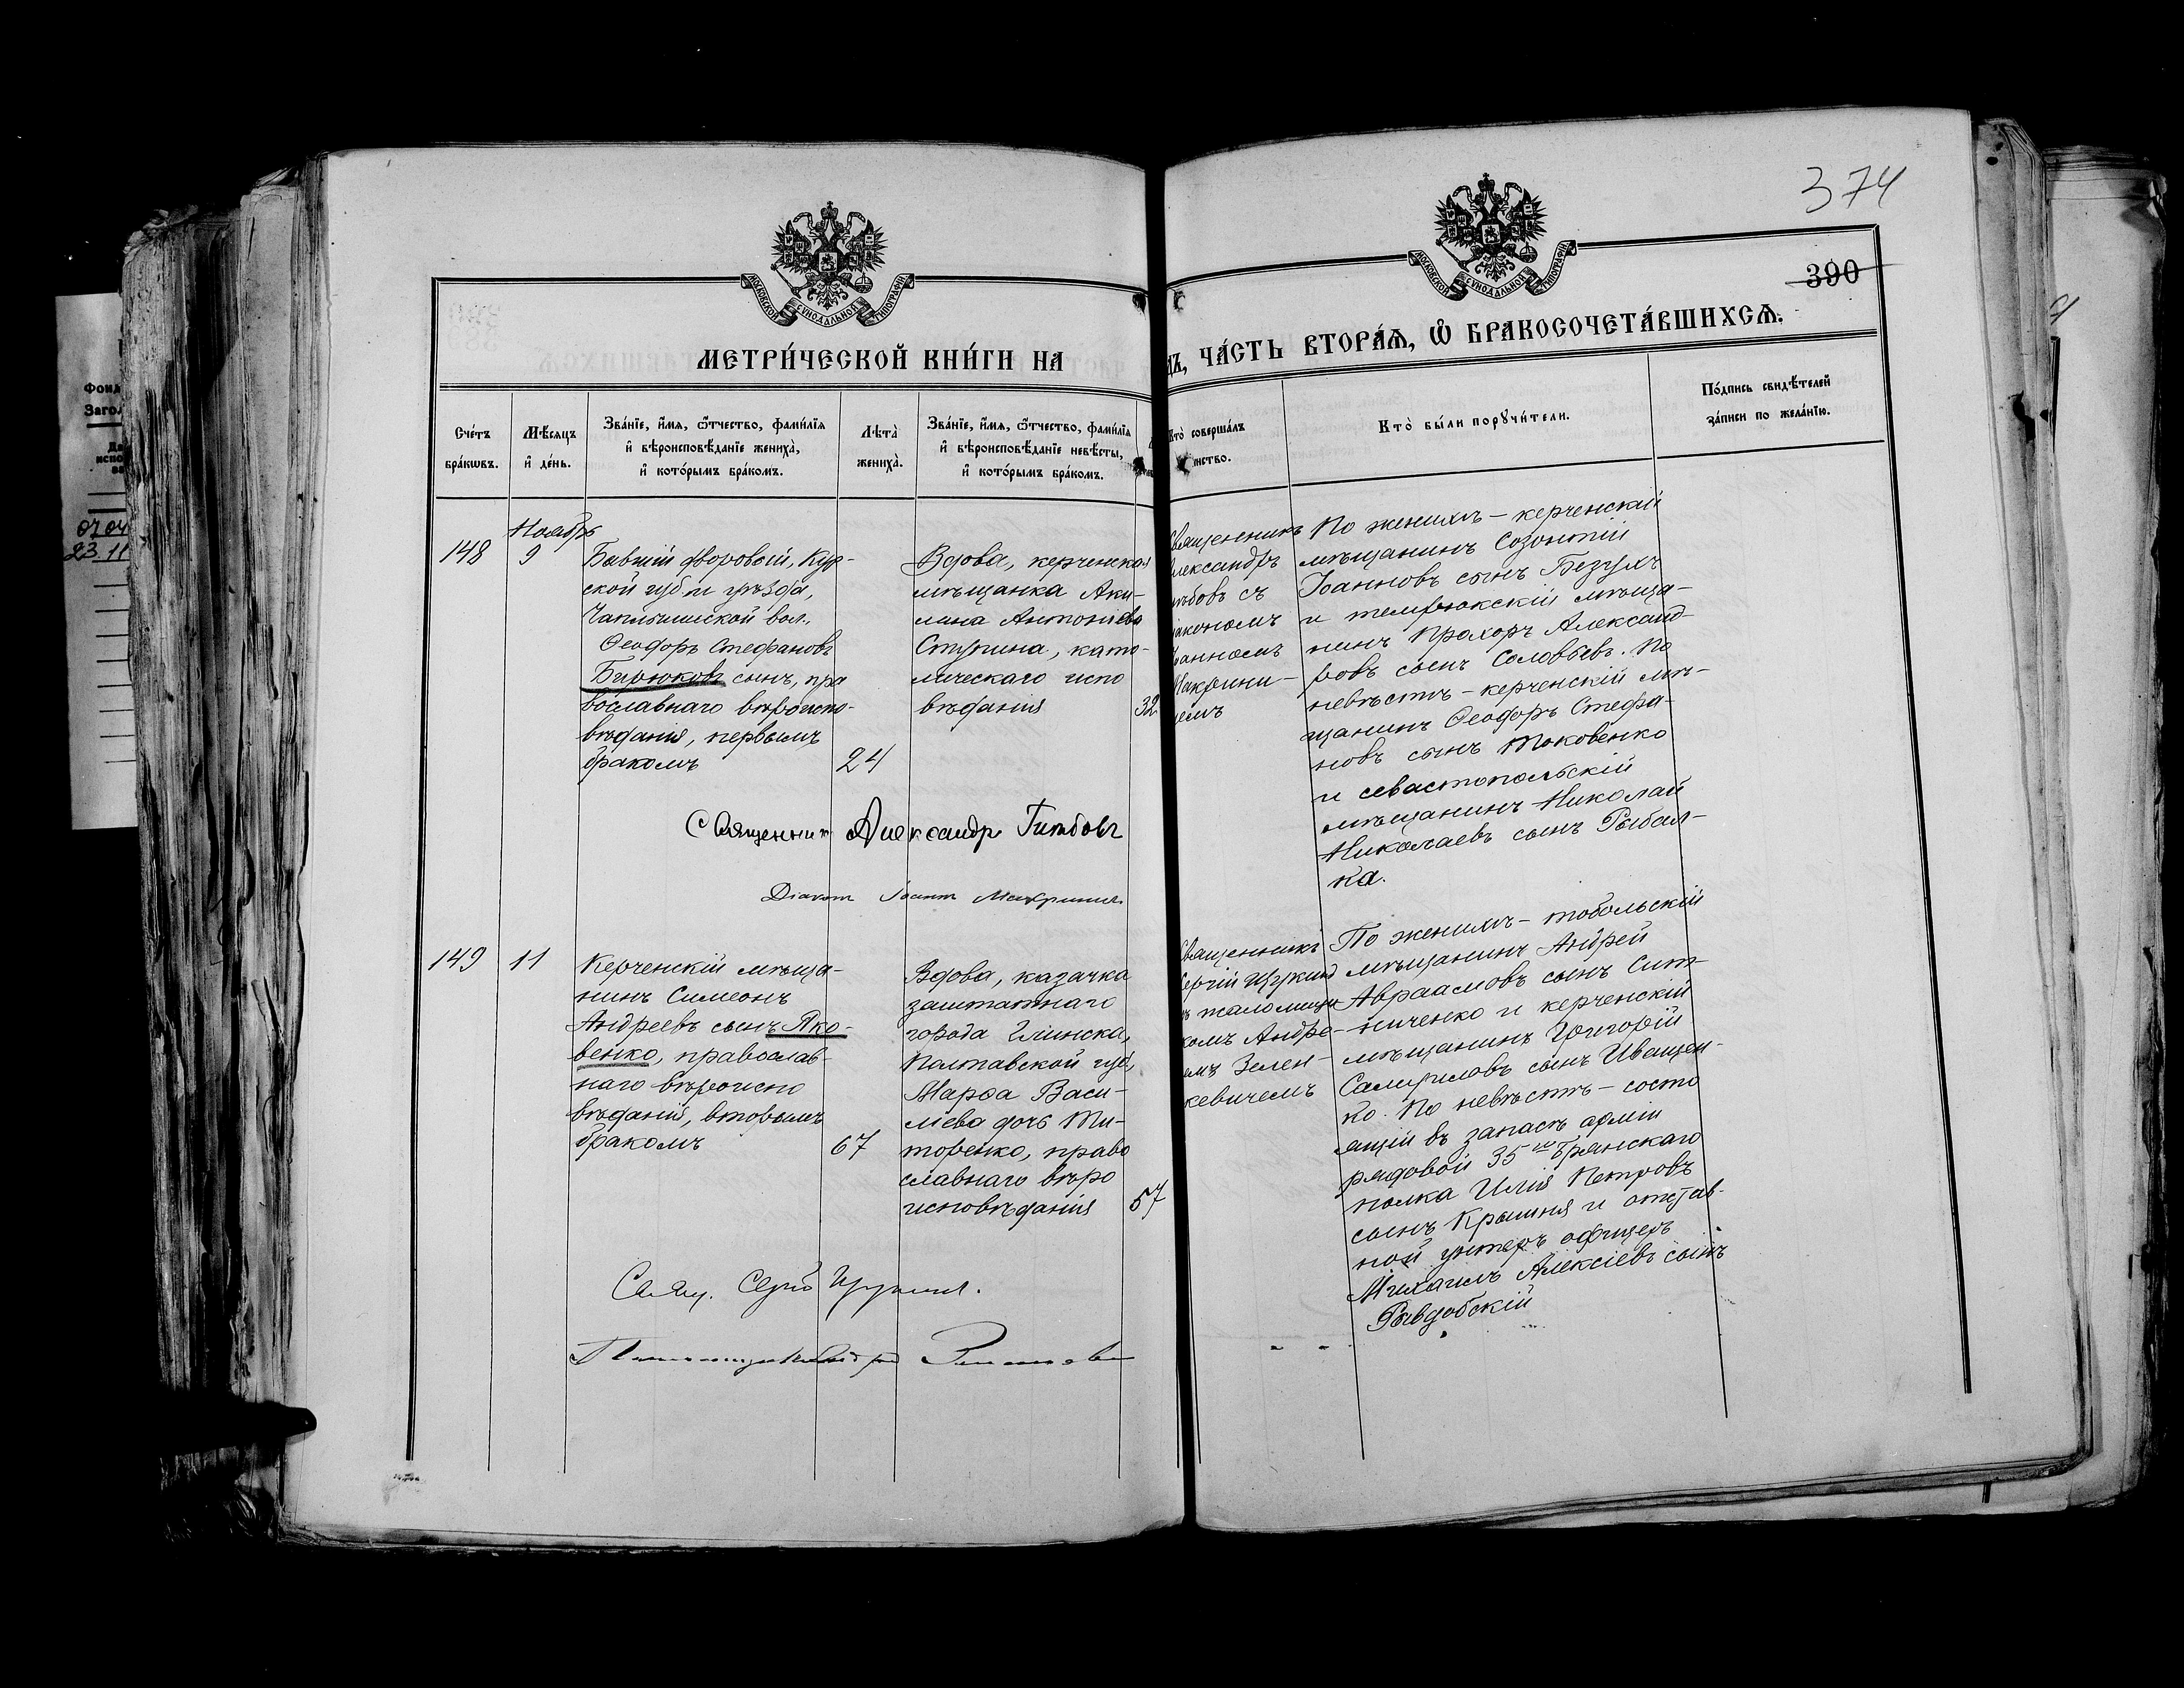 374
390
МОСКОВСКОЙ СѴНОДАЛЬНОЙ ТИПОГРАФІИ
МОСКОВСКОЙ СѴНОДАЛЬНОЙ ТИПОГРАФІИ
МЕТРИ́ЧЕСКОЙ КНИ́ГИ НА
ЧА́СТЬ ВТОРА́Ѧ, Ѽ БРАКОСОЧЕТА́ВШИХСѦ.
Сче́тъ
бра́кѡвъ.
Мѣ́сяцъ
и҆ де́нь.
Зва́нїе, и҆́мѧ, ѻ҆́тчество, фами́лїѧ
и҆ вѣроисповѣ́данїе жениха̀,
и҆ кото́рымъ бра́комъ.
Лѣта̀
жениха̀.
Зва́нїе, и҆́мѧ, ѻ҆́тчество, фами́лїѧ
и҆ вѣроисповѣ́данїе невѣ́сты,
и҆ кото́рымъ бра́комъ.
Кто̀ соверша́лъ
инство.
Кто̀ бы́ли порꙋчи́тели.
По́дпись свидѣ́телей
за́писи по жела́нїю.
148
Ноябрь
9
Бывшій дворовой, Кур-
ской губ. и уѣзда,
вол.,
Ѳеодоръ Стефановъ
Бирюковъ сынъ, пра
вославнаго вѣроиспо-
вѣданія, первымъ
бракомъ
24
Вдова, керченская
мѣщанка Аки-
лина Антоніева
Ступина, като-
лическаго испо
вѣданія
32
Священникъ
Александръ
ѣбовъ съ
іакономъ
оанномъ
Макрини-
емъ
По женихѣ – керченскій
мѣщанинъ Созонтій
Іоанновъ сынъ Безумъ
и темрюкскій мѣща-
нинъ Прохоръ Александ-
ровъ сынъ Соловьевъ. По
невѣстѣ – керченскій мѣ-
щанинъ Ѳеодоръ Стефа-
новъ сынъ Токовенко
и севастопольскій
мѣщанинъ Николай
Николаевъ сынъ Рыбал-
ка.
Священникъ Александръ Глѣбовъ
Діаконъ Іоаннъ
149
11
Керченскій мѣща-
нинъ Симеонъ
Андреевъ сынъ Яко-
венко, православ-
наго вѣроиспо
вѣданія, вторымъ
бракомъ
67
Вдова, казачка
заштатнаго
города Глинска,
Полтавской губ.,
Марѳа Васи-
ліева дочь Ти-
торенко, право
славнаго вѣро
исповѣданія
57
Священникъ
Сергій Цуткинъ
Андре-
емъ Зелен-
кевичемъ
По женихѣ – тобольскій
мѣщанинъ Андрей
Авраамовъ сынъ Сит-
ниченко и керченскій
мѣщанинъ Григорій
сынъ Иващен-
ко. По невѣстѣ – состо
ящій въ запасѣ арміи
рядовой 35го Брянскаго
полка Илія Петровъ
сынъ и отстав-
ной унтеръ офицеръ
Михаилъ Алексіевъ сынъ
Свящ. Сергій
Фонд
Загол